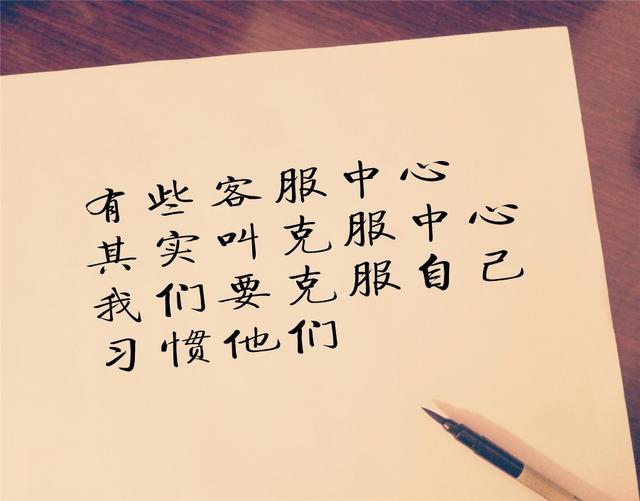 有些客服中心
其实叫克服中心
我们要克服自己
习惯他们